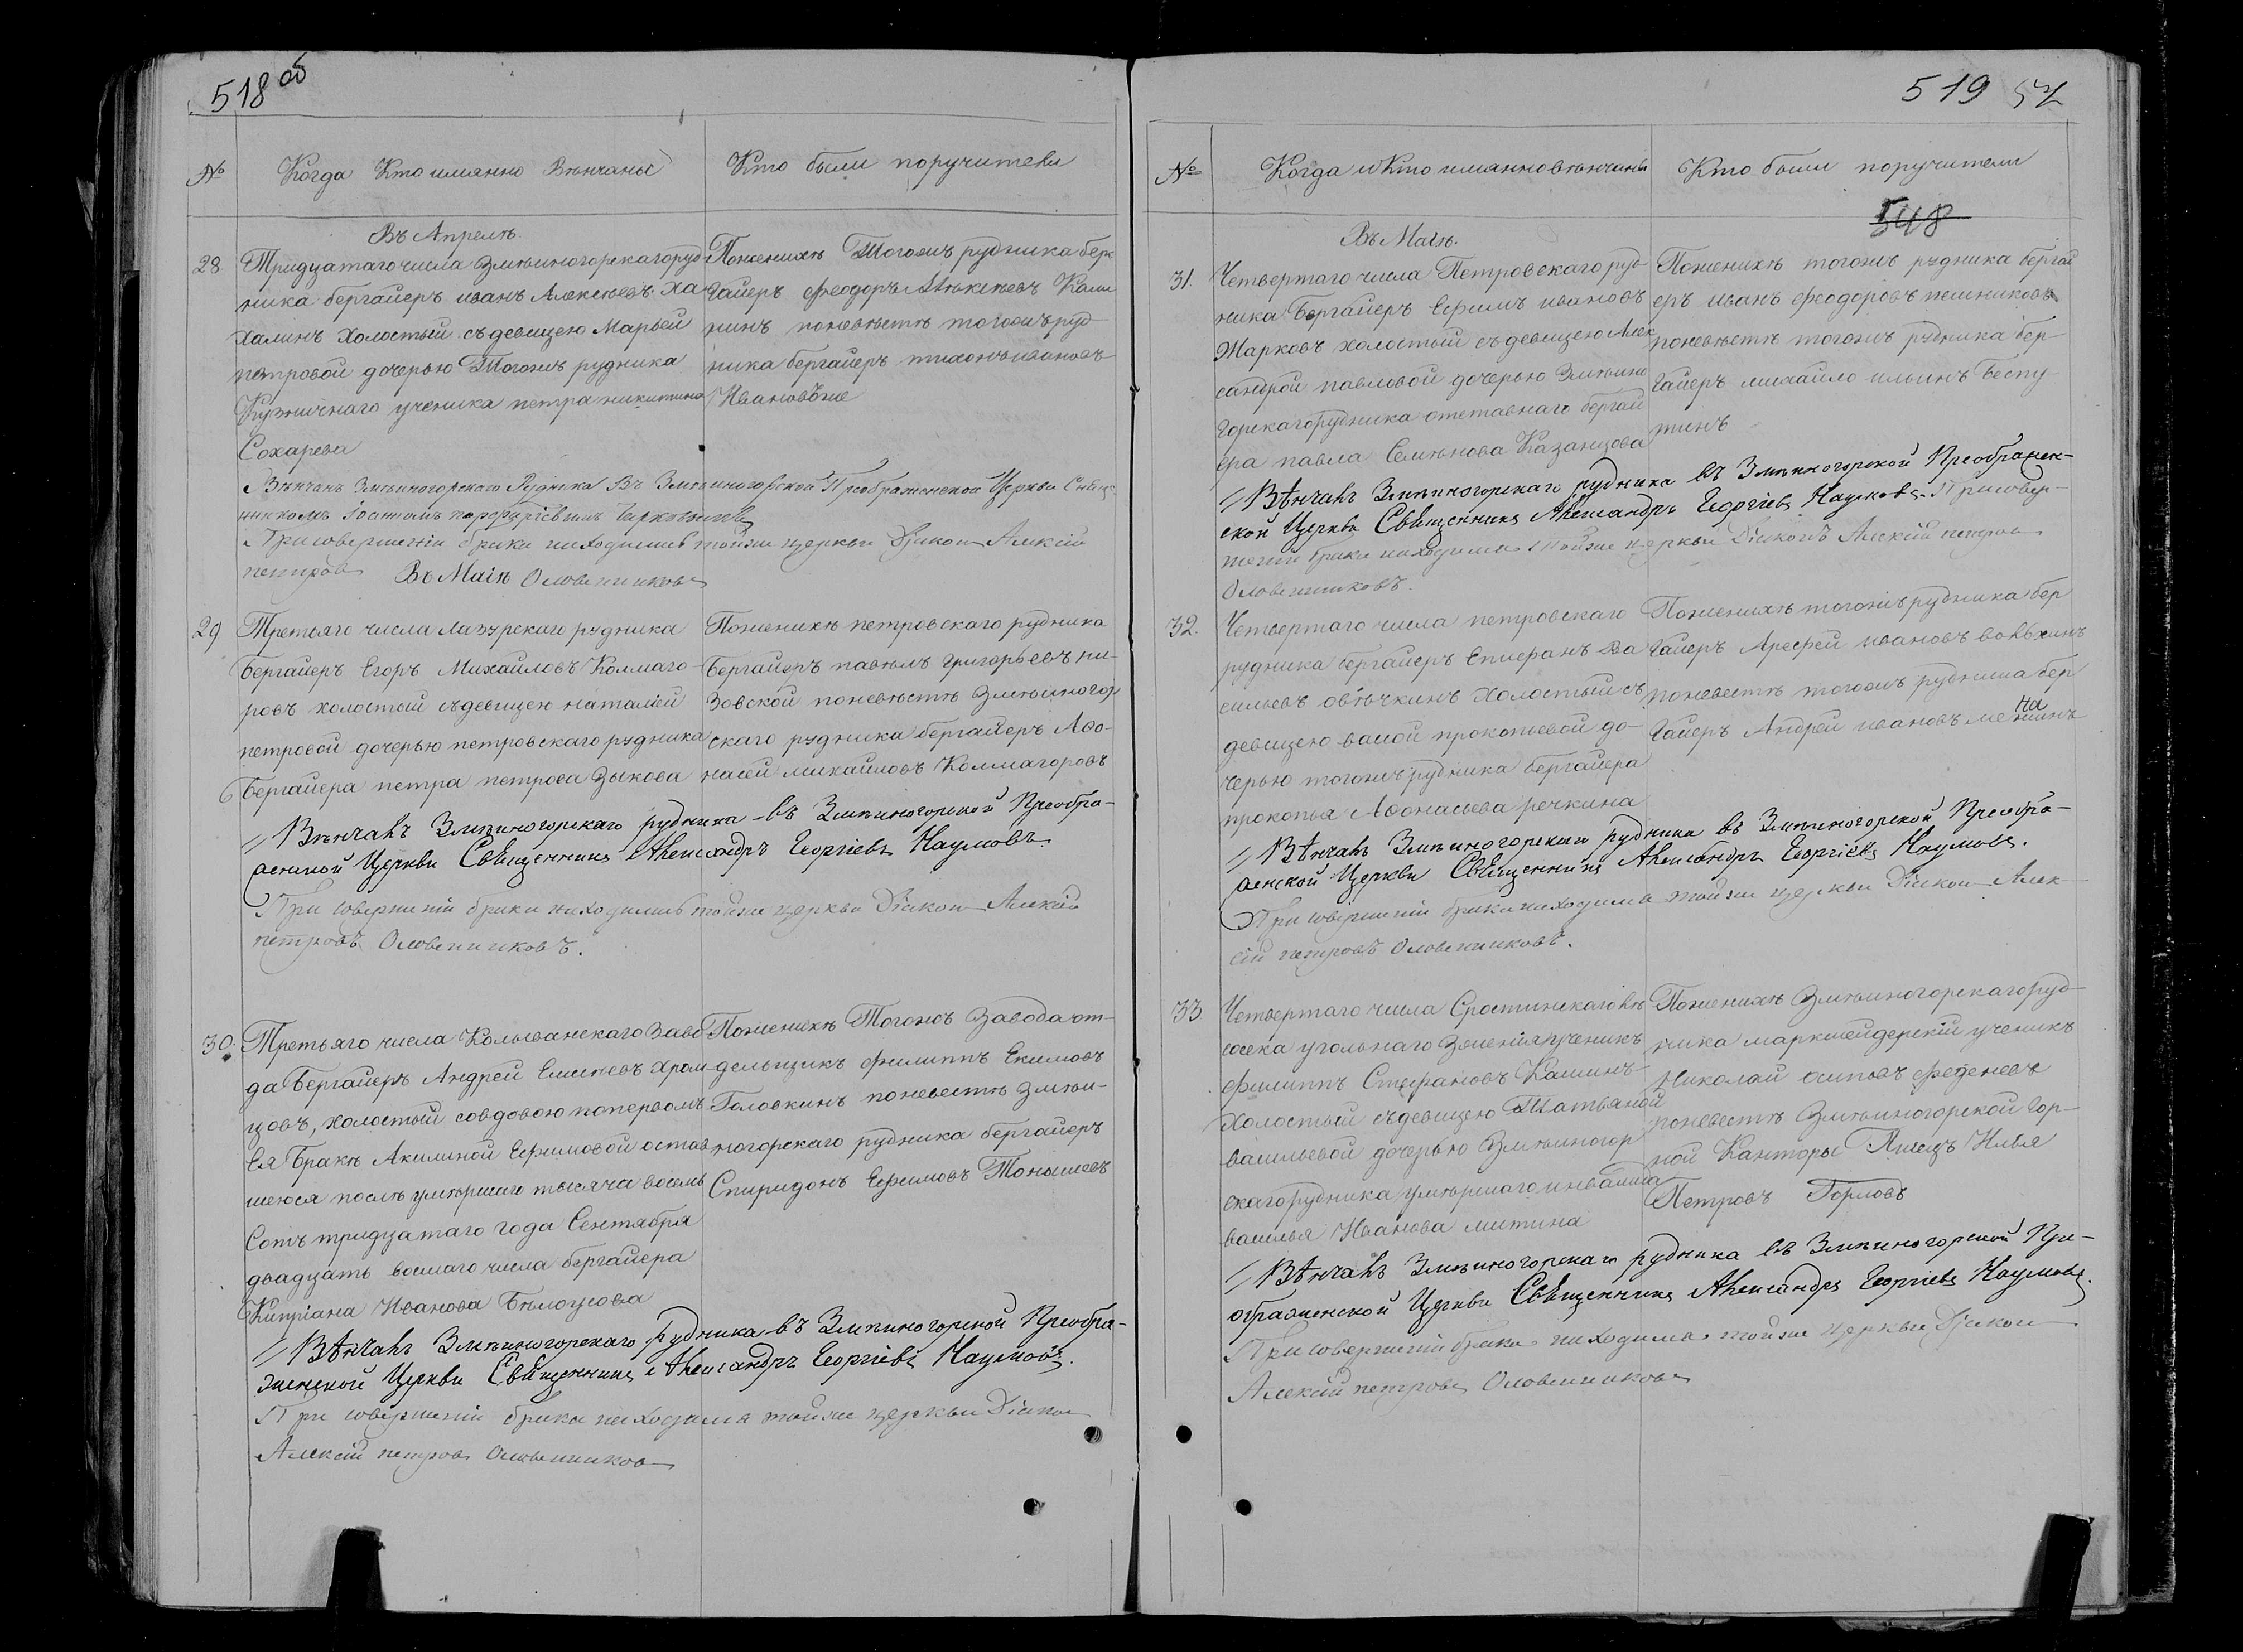 518 об
№ Когда Кто имянно Венчаны
Кто были поручители
Въ Апреле.
28 Тридцатаго числа Змѣиногорскагоруд
ника бергайеръ иванъ Алексѣевъ Ха
халинъ холостый съдевицею Марьей
петровой дочерью Тогожъ рудника
Кузничнаго ученика петра никитина
Сохарева
Поженихѣ Тогожъ рудника берг
гайеръ феодоръ Алѣксѣевъ Кали
нинъ поневѣстѣ тогожъруд
ника бергайеръ тихонъивановъ
Ивановъ
Вѣнчанъ Змѣиногорского Рудника Въ Змѣиногорской Преображенской Церкви Свящ
нникомъ
При совершеніи брака находился тойже церкви Діяконъ Алексій
петровъ Оловенниковъ
Въ Маіѣ
29 Третьяго числа Лазурскаго рудника
Бергайеръ Егоръ Михайловъ Колмаго-
ровъ холостый съдевицею наталіей
петровой дочерью петровскаго рудника
Бергайера петра петрова Зыкова
Поженихѣ петровскаго рудника
Бергайеръ павѣлъ григорьевъ ни-
зовской поневѣстѣ Змѣиногор
скаго рудника бергайеръ Аѳо-
насей михайловъ Колмагоровъ
Вѣнчанъ Змѣиногорскаго рудника въ Змѣиногорской Преобра-
женской Церкви Священникъ Александръ Георгіевъ Наумовъ.
При совершеніи брака находился тойже церкви Діяконъ Алексій
петровъ Оловенниковъ.
30. Третьяго числа Колыванскаго Заво
да Бергайеръ Андрей Елисеевъ Хром
цовъ, холостый совдовою попервомъ
Ея Бракѣ Акилиной Ефимовой остав
шеюся послѣ умѣршаго тысяча восемь
Сотъ тридцатаго года Сентября
двадцать восмаго числа бергайера
Кипріана Иванова Бѣлоусова
Поженихѣ Тогожъ Завода от-
дельщикъ филиппъ Екимовъ
Головкинъ поневестѣ Змѣи-
ногорскаго рудника бергайеръ
Спиридонъ Ефимовъ Тонышевъ
Вѣнчанъ Змѣиногорскаго Рудника въ Змѣиногорской Преобра-
женской Церкви Священникъ Александръ Георгіевъ Наумовъ.
При совершеніи брака находился тойже церкви Діяконъ
Алексій петровъ Оловенниковъ
519 57
№ Когда и Кто имянновѣнчаны
Кто были поручители
548
Въ Маіѣ.
31. Четвертаго числа Петровскаго руд-
ника Бергайеръ Ефимъ ивановъ
Жарковъ холостый съдевицею Алек
сандрой павловой дочерью Змѣино
горскагорудника отставнаго бергай
ера павла Семѣнова Казанцова
Поженихѣ тогожъ рудника бергай
еръ иванъ феодоровъ пешниковъ
поневѣстѣ тогожъ рудника бер-
гайеръ михайло ильинъ Беспу
тинъ
Вѣнчанъ Змѣиногорскаго рудника въ Змѣиногорской Преображен-
ской Церкви Священникъ Александръ Георгіевъ Наумовъ. Присовер-
шеніи брака находился тойже церкви Діяконъ Алексій петровъ
Оловенниковъ.
32. Четвертаго числа петровскаго
рудника бергайеръ Епифанъ Ва
сильевъ овѣчкинъ холостый съ
девицею васой прокопьевой до-
черью тогожъ рудника бергайера
прокопья Аѳонасьева речкина
Поженихѣ тогожъ рудника бер
гайеръ Арефей ивановъ
поневестѣ тогожъ рудника бер
гайеръ Андрей ивановъ
Вѣнчанъ Змѣиногорскаго рудника въ Змѣиногорской Преобра-
женской Церкви Священникъ Александръ Георгіевъ Наумовъ.
При совершеніи брака находился тойже церкви Діяконъ Алек
сій петровъ Оловенниковъ.
33 Четвертаго числа Сростинскаго
угольнаго ученикъ
филиппъ Стефановъ Кашинъ
Холостый съдевицею Татьяной
васильевой дочерью Змѣиногор
скагорудника умѣршаго инвалида
василья Иванова митина
Поженихѣ Змѣиногорскагоруд-
ника маркшейдерскій ученикъ
Николай осиповъ феденевъ
поневестѣ Змѣиногорской Гор-
ной Канторы Писецъ Илья
Петровъ Горловъ
Вѣнчанъ Змѣиногорскаго рудника въ Змѣиногорской Пре-
ображенской Церкви Священникъ Александръ Георгіевъ Наумовъ.
При совершеніи брака находился тойже церкви Діяконъ
Алексій петровъ Оловенниковъ